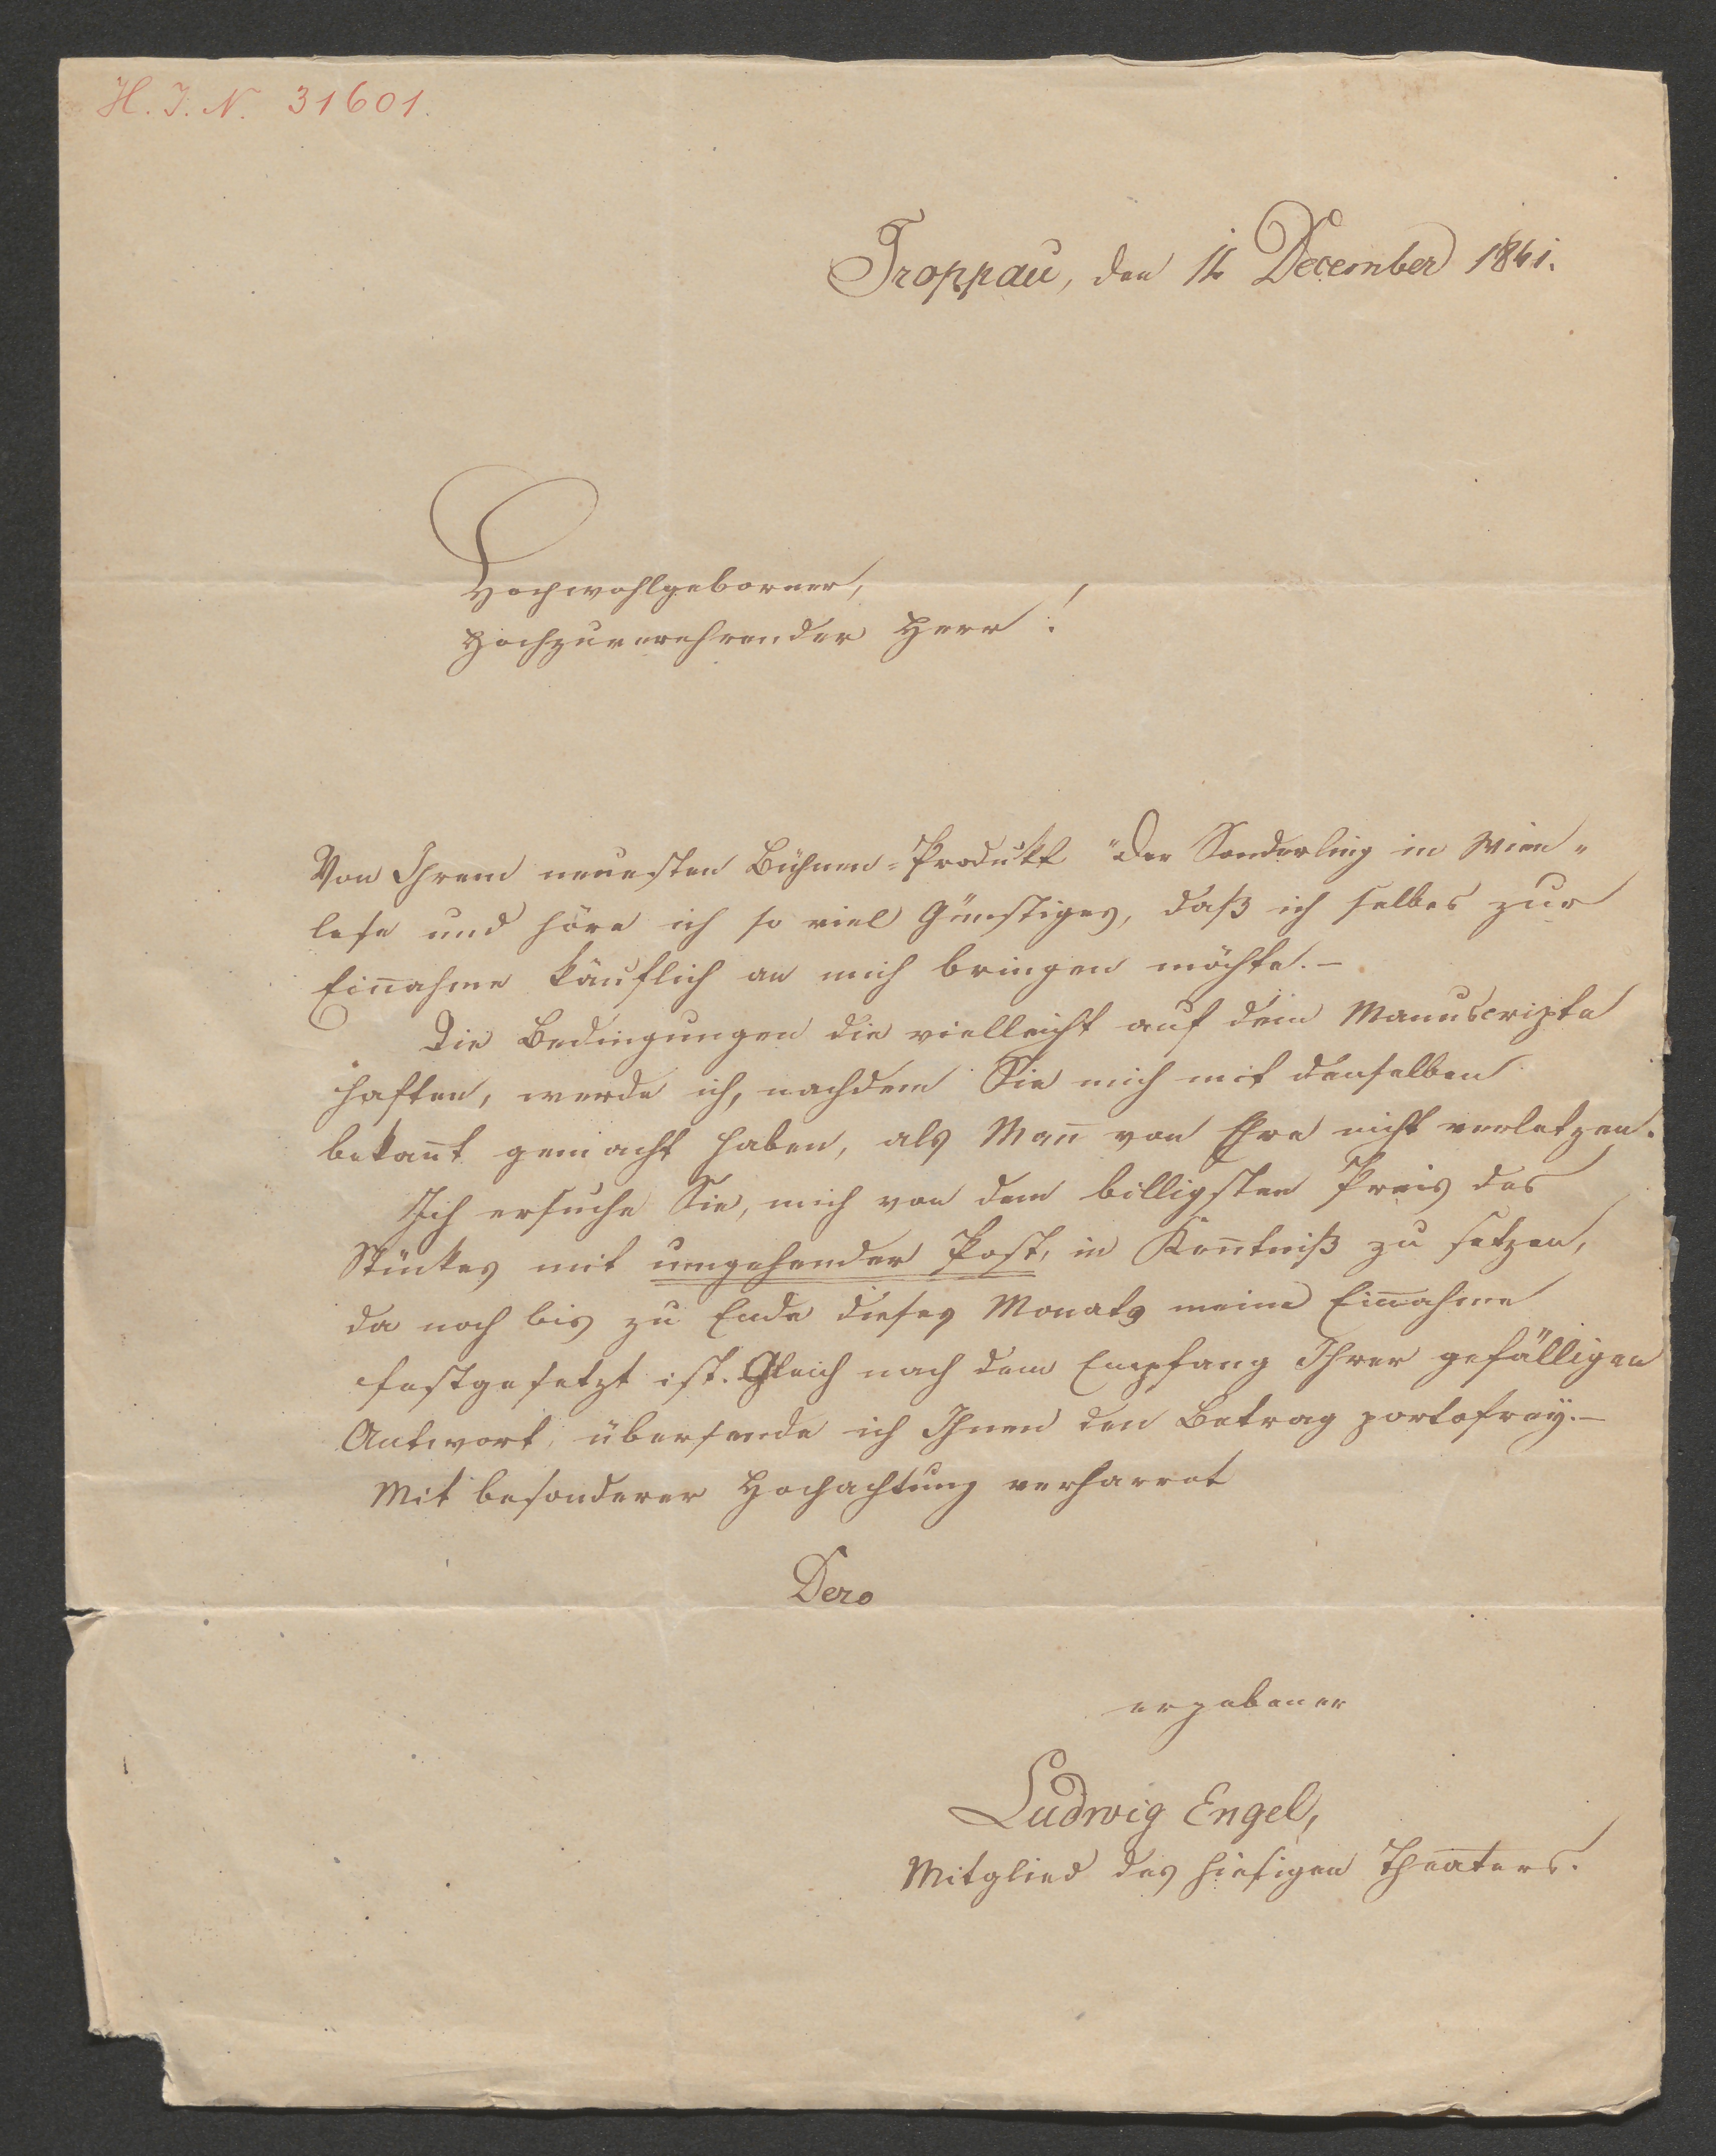 H. I. N. 31601.
Troppau, den 14 December 1841.
Hochwohlgeborner,
Hochzuverehrender Herr!
Von Ihrem neuesten Bühnen-Produkt "Der Sonderling in Wien"
lese und höre ich so viel Günstiges, daß ich selbes zur
Einahme käuflich an mich bringen möchte.—
Die Bedingungen die vielleicht auf dem Manuscripte
haften, werde ich, nachdem Sie mich mit denselben
bekan̅t gemacht haben, als Man̅ von Ehre nicht verletzen.
Ich ersuche Sie, mich von dem billigsten Preis des
Stückes mit umgehender Post, in Ken̅tniß zu setzen,
da noch bis zu Ende dieses Monats meine Einahme
festgesetzt ist. Gleich nach dem Empfang Ihrer gefälligen
Antwort, übersende ich Ihnen den Betrag portofrey.—
Mit besonderer Hochachtung verharret
Dero
ergebener
Ludwig Engel,
Mitglied des hiesigen Theaters.